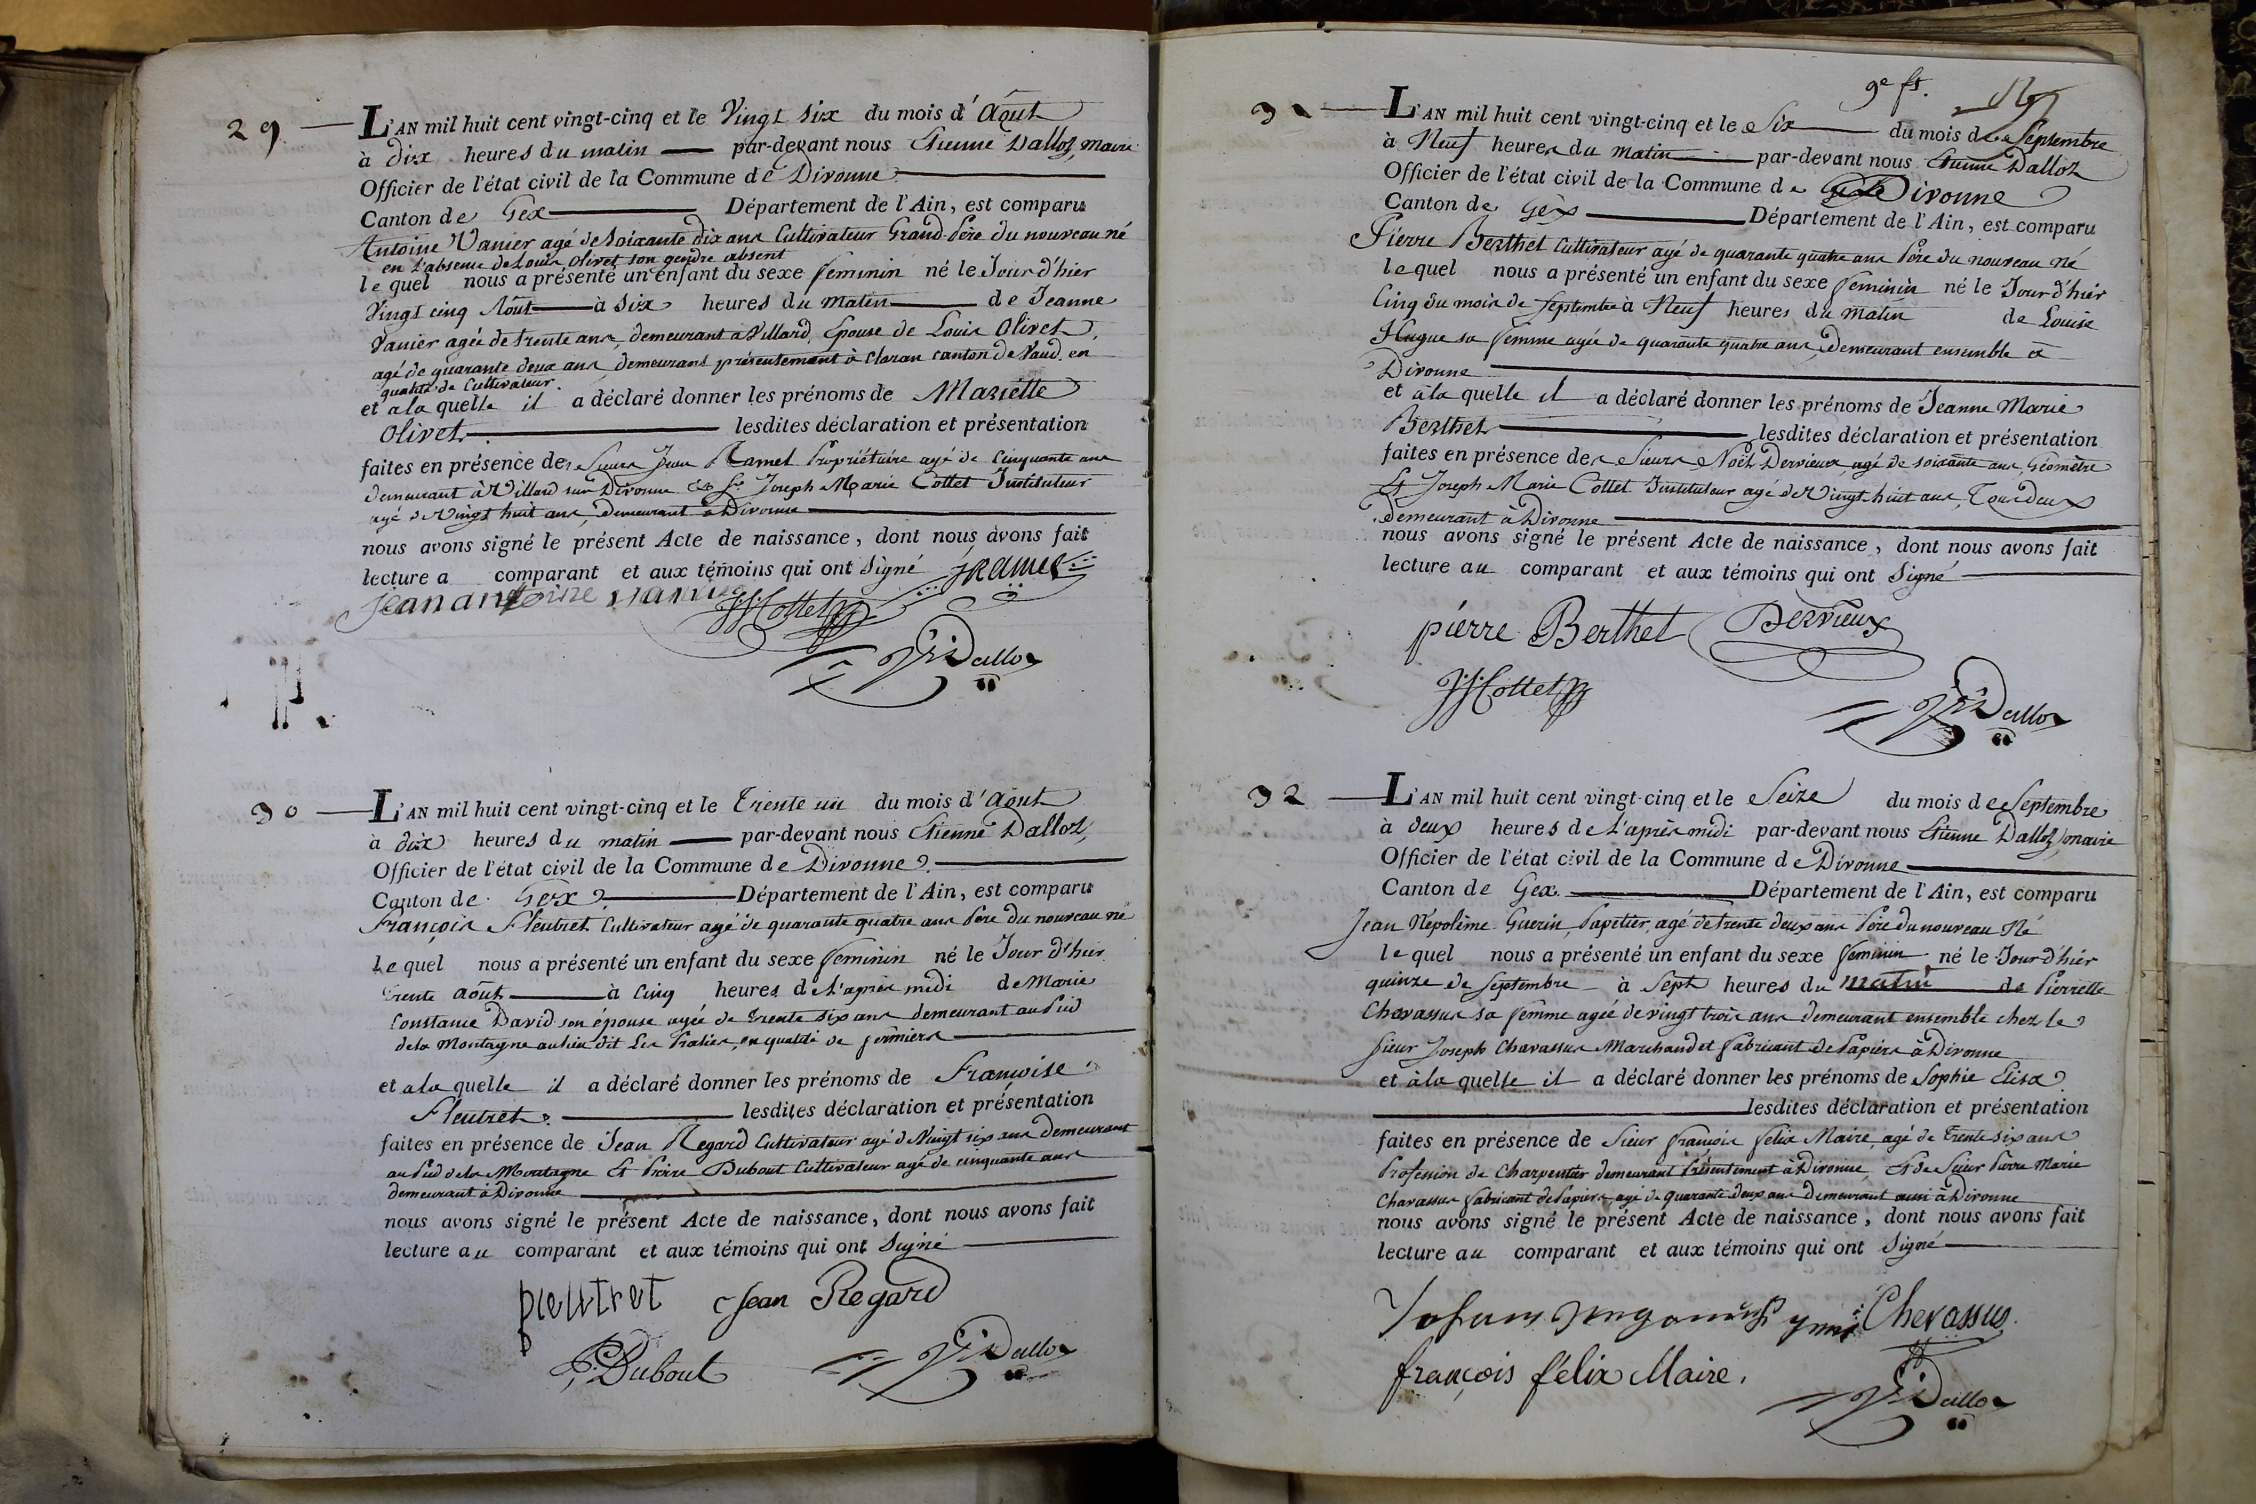 29. L'AN mil huit cent vingt-cinq et le Vingt Six du mois d'Août
à dix heures du matin par-devant nous Etienne Dalloz, maire
Officier de l'état civil de la Commune de Divonne
Canton de Gex Département de l'Ain, est comparu
Antoine Vanier agé de Soixante dix ans Cultivateur Grand-Père du nouveau né
en l'absence de Louis Olivet son gendre absent
lequel nous a présenté un enfant du sexe feminin né le Jour d'hier
Vingt cinq Aôut à Six heures du matin de Jeanne
Vanier agée de trente ans, demeurant à Villard, Epouse de Louis Olivet,
agé de quarante deux ans, demeurant présentement à Claran canton de Vaud en
qualité de Cultivateur.
et a la quelle il a déclaré donner les prénoms de Mariette
Olivet. lesdites déclaration et présentation
faites en présence des Sieurs Jean Ramel Propriétaire agé de Cinquante ans
demeurant à Villard sur Divonne & Sr Joseph Marie Cottet Instituteur
agé de Vingt huit ans, demeurant à Divonne
nous avons signé le présent Acte de naissance, dont nous avons fait
lecture a comparant et aux témoins qui ont Signé JRamel
Jean antoine vanie JJCottet
Dalloz
30 L'AN mil huit cent vingt-cinq et le Trente un du mois d'Août
à dix heures du matin par-devant nous Etienne Dalloz,
Officier de l'état civil de la Commune de Divonne
Canton de Gex Département de l'Ain, est comparu
François Fleutret Cultivateur agé de quarante quatre ans Père du nouveau né
Lequel nous a présenté un enfant du sexe feminin né le Jour d'hier
trente août à Cinq heures de L'après midi de Marie
Constance David son épouse agée de trente six ans demeurant au Pied
de la Montagne au lieu dit Les en qualité de fermiers
et a la quelle il a déclaré donner les prénoms de Françoise
Fleutret. lesdites déclaration et présentation
faites en présence de Jean Regard Cultivateur agé de Vingt six ans demeurant
au Pied de la Montagne Et Pierre Dubout Cultivateur agé de cinquante ans
demeurant à Divonne
nous avons signé le présent Acte de naissance, dont nous avons fait
lecture au comparant et aux témoins qui ont Signé
fleutret Jean Regard
P. Dubout Dalloz
9e ft.
31 L'AN mil huit cent vingt-cinq et le Six du mois de Septembre
à Neuf heures du matin par-devant nous Etienne Dalloz
Officier de l'état civil de la Commune de Divonne
Canton de Gex Département de l'Ain, est comparu
Pierre Berthet Cultivateur agé de quarante quatre ans Père du nouveau né
lequel nous a présenté un enfant du sexe feminin né le Jour d'hier
Cinq du mois de Septembre à Neuf heures du matin de Louise
Hugue sa femme agée de quarante quatre ans, demeurant ensemble à
Divonne
et à la quelle il a déclaré donner les prénoms de Jeanne Marie
Berthet lesdites déclaration et présentation
faites en présence des Sieurs Noël Dervieux agé de soixante ans Géomètre
Et Joseph Marie Cottet Instituteur agé de Vingt huit ans, Tous deux
demeurant à Divonne
nous avons signé le présent Acte de naissance, dont nous avons fait
lecture au comparant et aux témoins qui ont Signé
pierre Berthet Dervieux
JJCottet
Dalloz
32 L'AN mil huit cent vingt-cinq et le Seize du mois de Septembre
à deux heures de L'après midi par-devant nous Etienne Dalloz, maire
Officier de l'état civil de la Commune de Divonne
Canton de Gex. Département de l'Ain, est comparu
Jean Népolême Guerin, Papetier, agé de trente deux ans Père du nouveau Né
lequel nous a présenté un enfant du sexe feminin né le Jour d'hier
quinze de Septembre à Sept heures du matin de Pierrette
Chavassus sa femme agée de vingt trois ans demeurant ensemble chez le
Sieur Joseph Chavassus Marchand et fabricant de Papiers à Divonne
et à la quelle il a déclaré donner les prénoms de Sophie Elisa
lesdites déclaration et présentation
faites en présence de Sieur françois felix Maire, agé de trente six ans
Profession de Charpentier demeurant Présentement à Divonne, Et de Sieur Pierre Marie
Chavassus fabricant de Papiers, agé de quarante deux ans demeurant aussi à Divonne
nous avons signé le présent Acte de naissance, dont nous avons fait
lecture au comparant et aux témoins qui ont Signé
Chevassus
françois félix Maire.
Dalloz